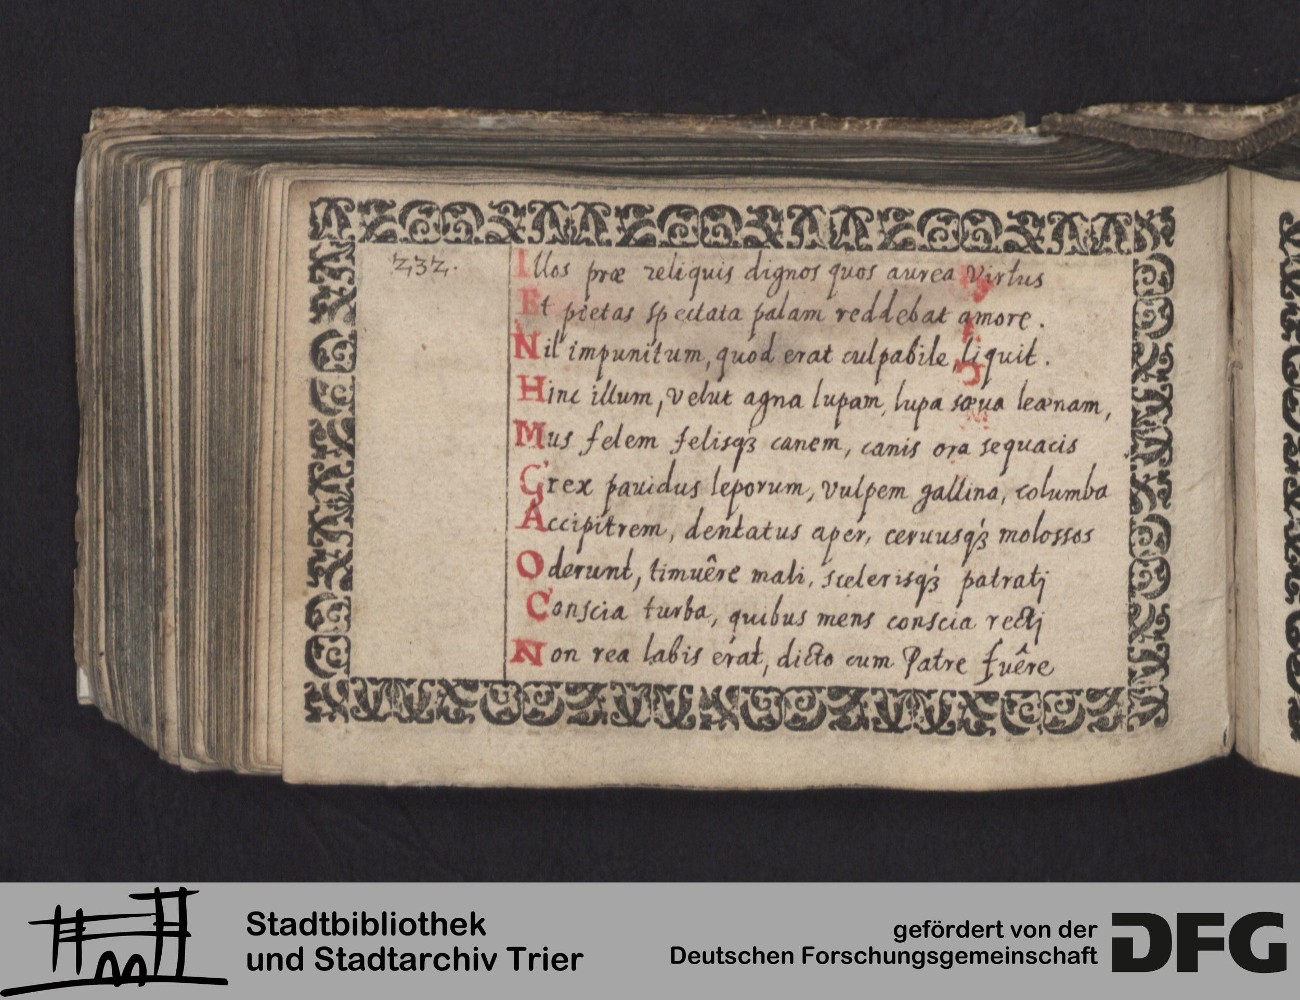 232.
Illos præ reliquis dignos quos aurea virtus
Et pietas spectata palam reddebat amore.
Nil impunitum, quod erat culpabile, liquit.
Hinc illum, velut agna lupam, lupa sæua leænam,
Mus felem felisqꝫ canem, canis ora sequacis
Grex pauidus leporum, vulpem gallina, columba
Accipitrem, dentatus aper, ceruusqꝫ molossos
Oderunt, timuêre mali, scelerisqꝫ patratj
Conscia turba, quibus mens conscia rectj
Non rea labis erat, dicto cum Patre fuêre
Stadtbibliothek
und Stadtarchiv Trier
gefördert von der
Deutschen Forschungsgemeinschaft
DFG